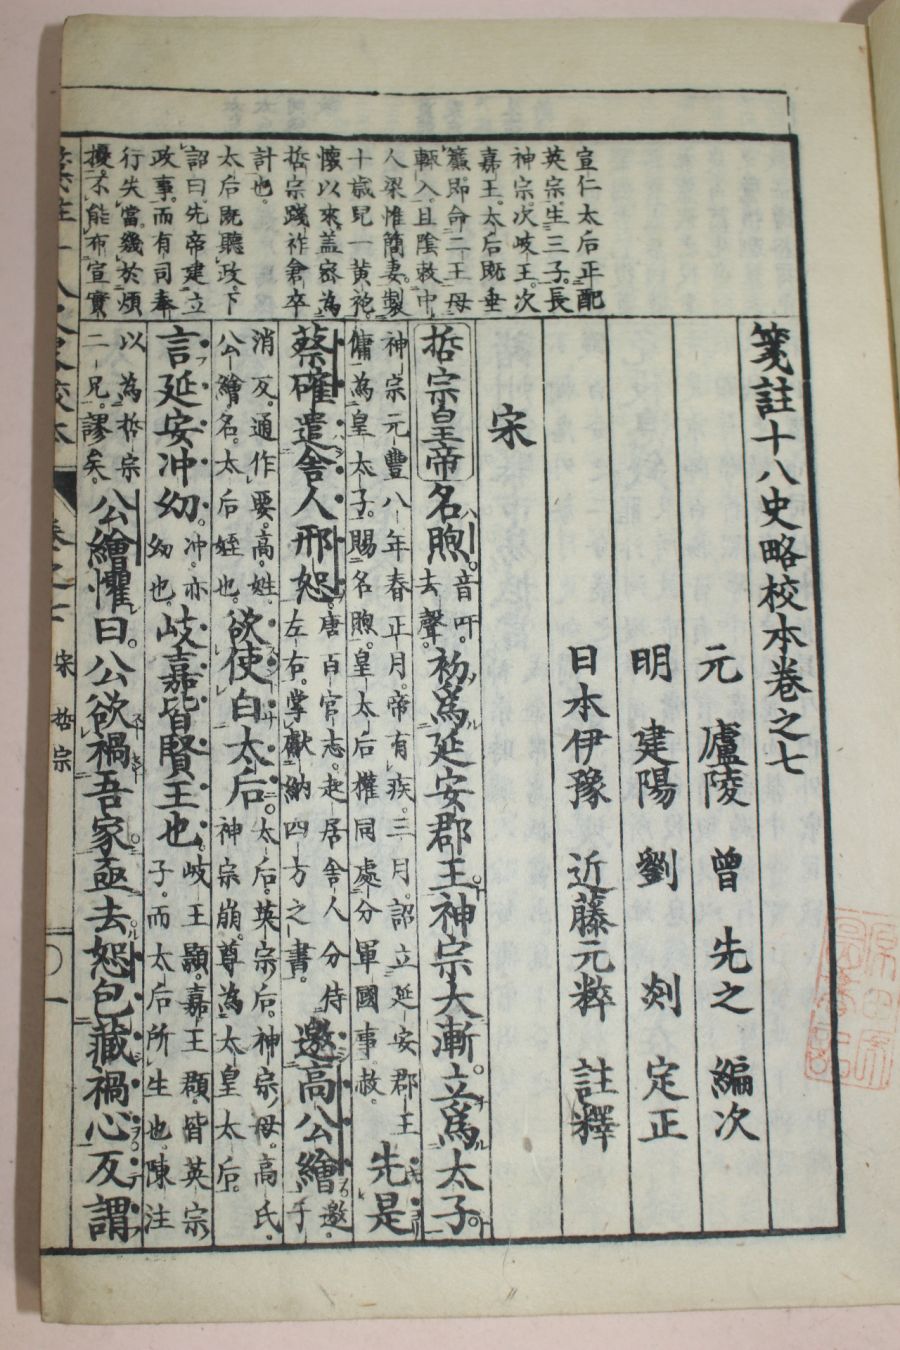 宣仁太后正配
英宗。生三子。長
神宗。次岐王。次
嘉王。太后既垂
簾。即命二王母
輒入。且陰敕中
人梁惟簡妻。製
十歲兒一黃袍
懷以來。蓋密為
哲宗踐祚倉卒
計也。
太后既聽政。下
詔曰。先帝建立
政事。而有司奉
行失當。幾於煩
擾。不能布宣實
箋註十八史略校本卷之七
元 廬陵 曾 先之 編次
明 建陽 劉 剡 定正
日本伊豫 近藤元粹 註釋
宋
哲宗皇帝名煦。音吁。去聲。初為延安郡王。神宗大漸。立為太子。
神宗元豐八年春正月。帝有疾。三月。詔立延安郡王
傭為皇太子。賜名煦。皇太后權同處分軍國事。赦。先是
蔡確遣舍人邢恕。唐百官志。起居舍人分侍左右。掌獻納四方之書。邀高公繪。邀。于
消反。通作要。高。姓。公繪名。太后姪也。欲使白太后。太后。英宗后。神宗母。高氏。神宗崩。尊為太皇太后。
言延安冲幼。冲。亦幼也。岐嘉皆賢王也。岐王顥。嘉王頵。皆英宗子。而太后所生也。陳注
以為哲宗二兄。謬矣。公繪懼曰。公欲禍吾家。亟去。恕包藏禍心。反謂
卷之七
宋 哲宗
一